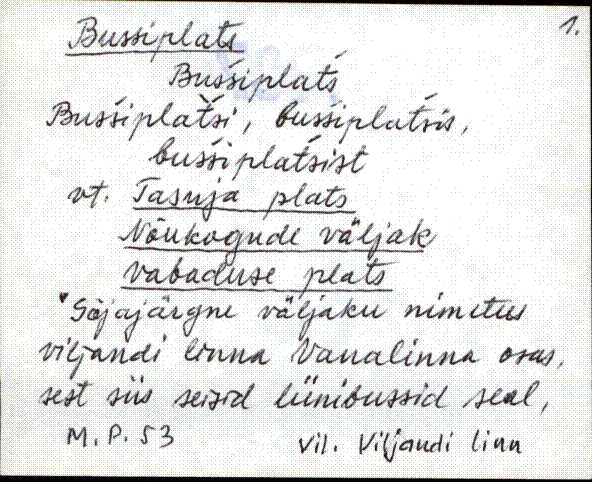 1.
Bussiplats
Buśśiplat́s
Buśśiplat́śi, buśśiplat́sis,
buśśiplat́sist
vt. Tasuja plats
Nõukogude väljak
Vabaduse plats
Sõjajärgne väljaku nimetus
viljandi linna Vanalinna osas,
sest siis seisid liinibussid seal,
M. P. 53 Vil. Viljandi linn